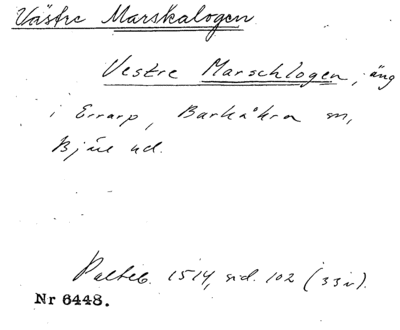 Västre Marskalogen
Vestre Marschlogen, äng
i Errarp, Barkåkra sn,
Bjäre hd.
Palteb. 1514, sid. 102 (33v).
Nr 6448.